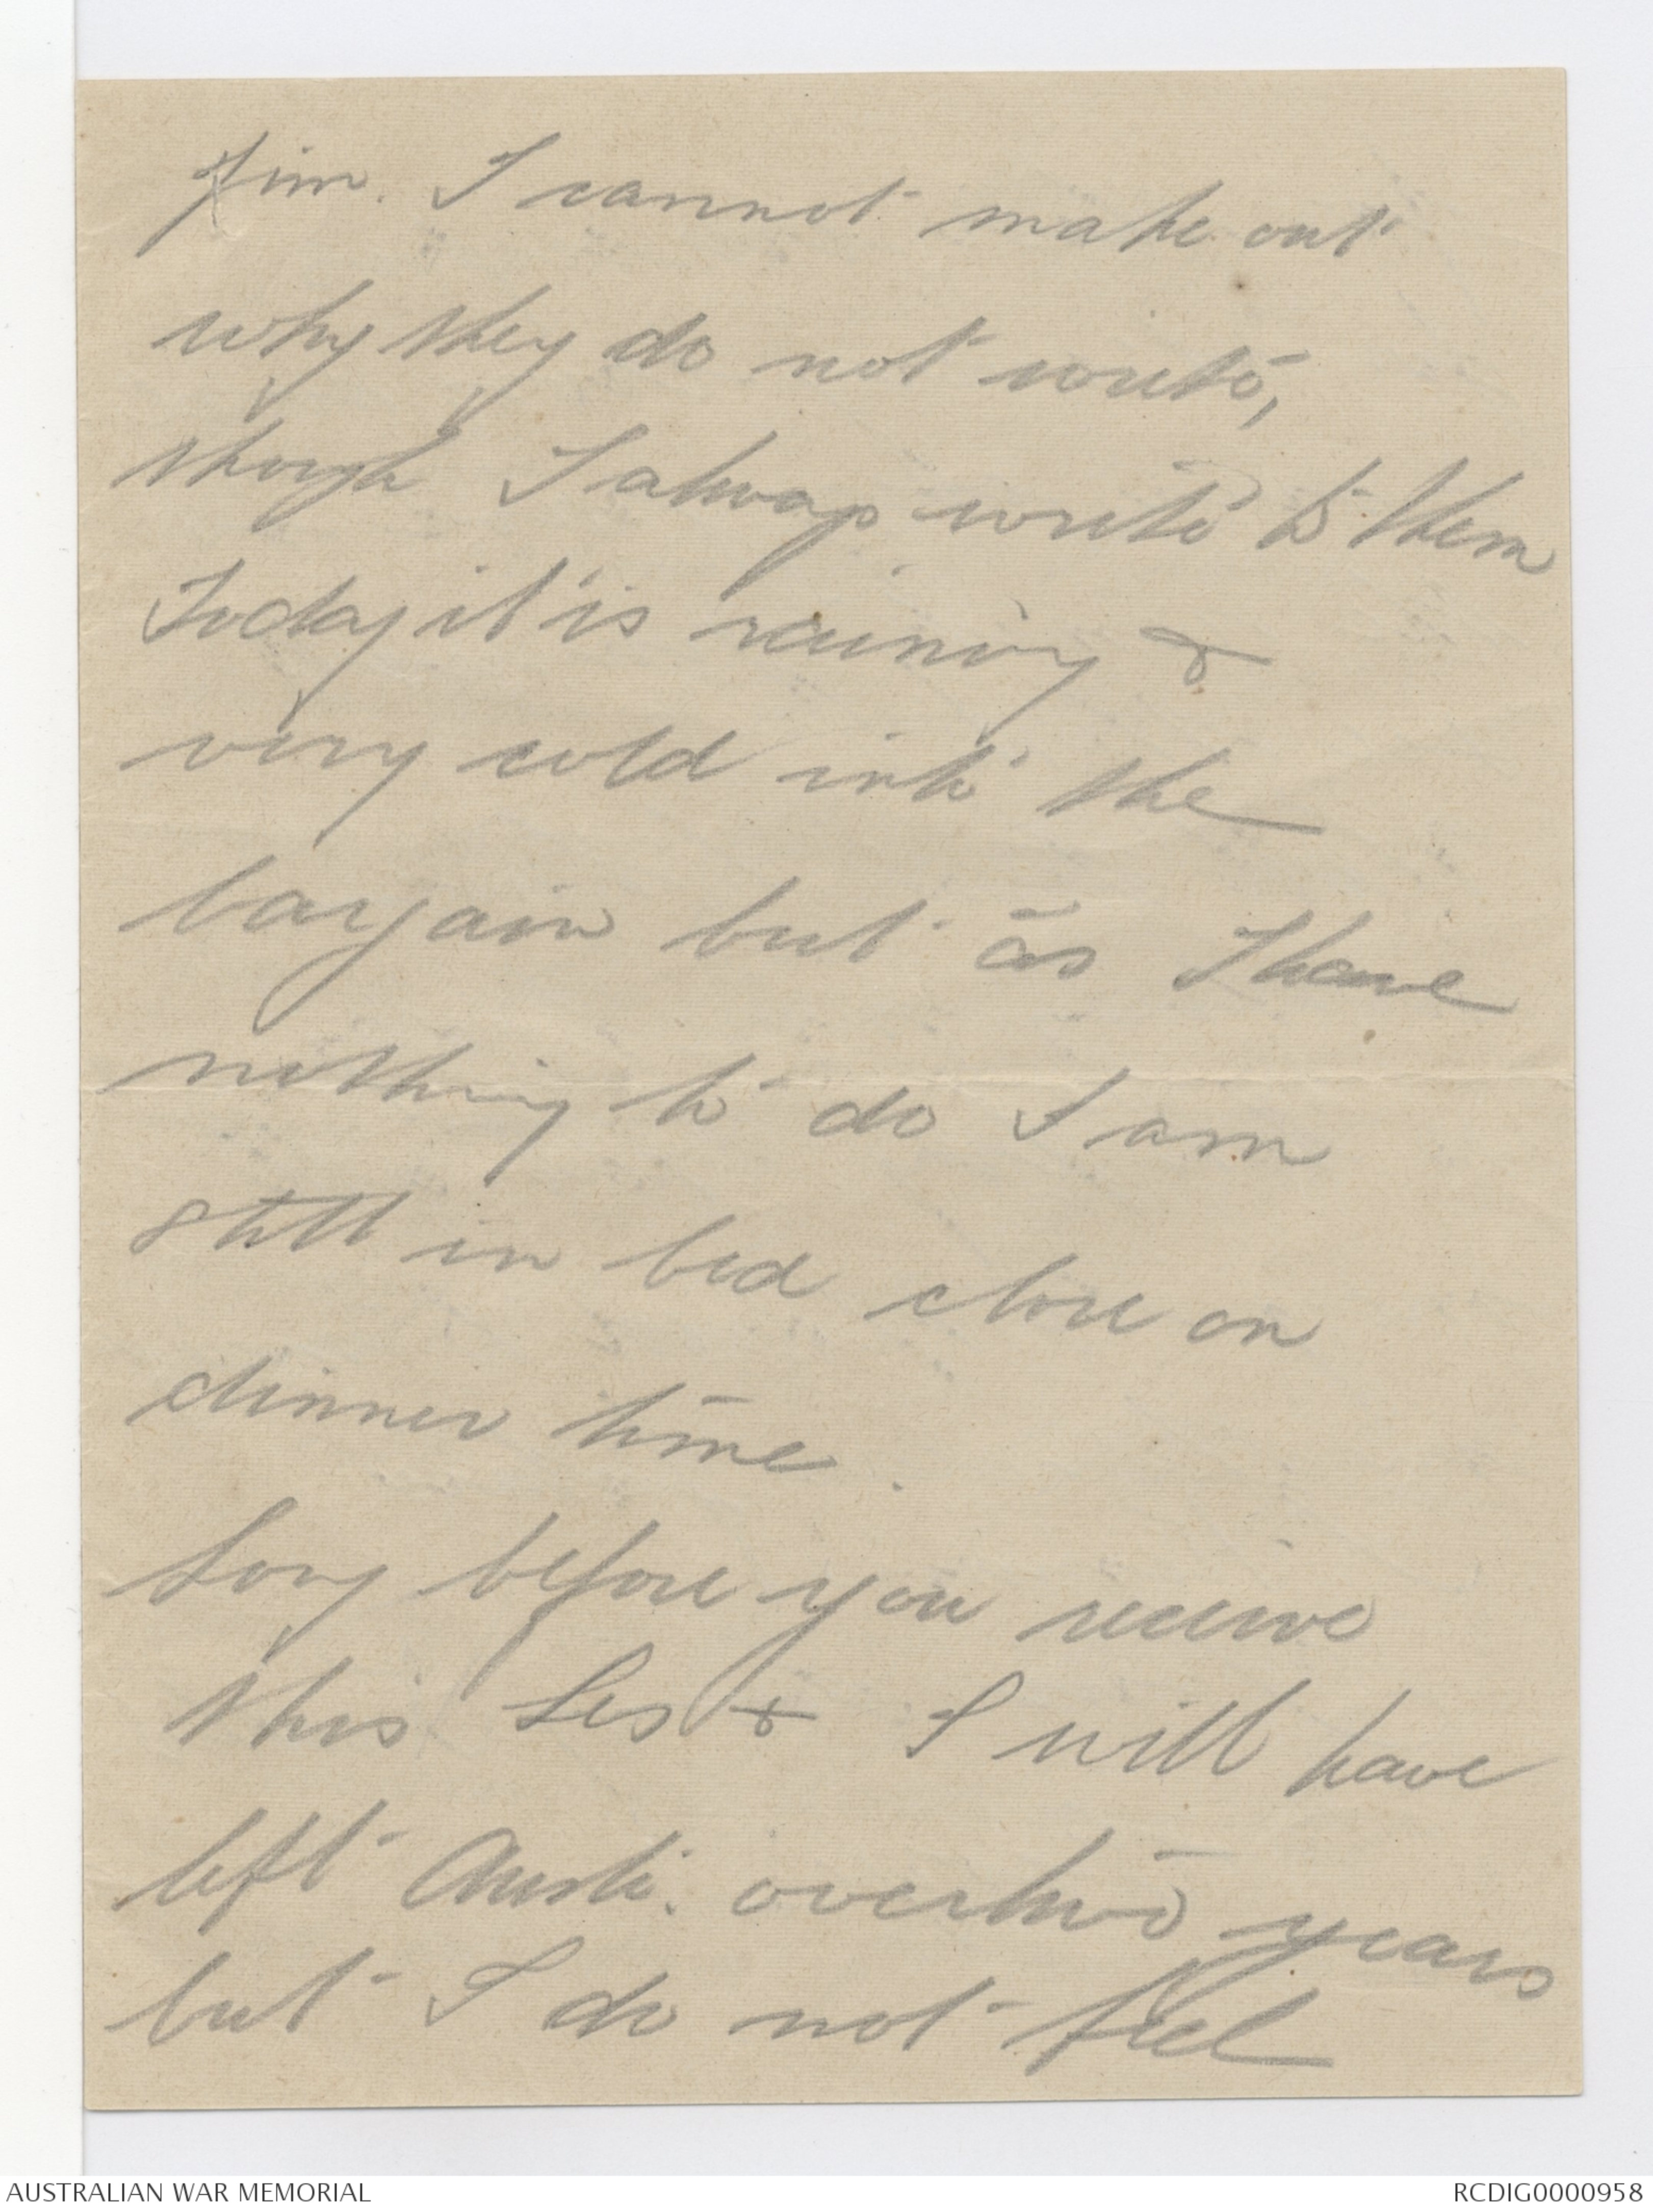 Jim. I cannot make out
why they do not write,
though I always write to them
Today it is raining &
very cold into the
bargain but as I have
nothing to do I am
still in bed close on
dinner time.
Long before you receive
this Les & I will have
left Austr. over two years
but I do not feel
AUSTRALIAN WAR MEMORIAL
RCDIG0000958